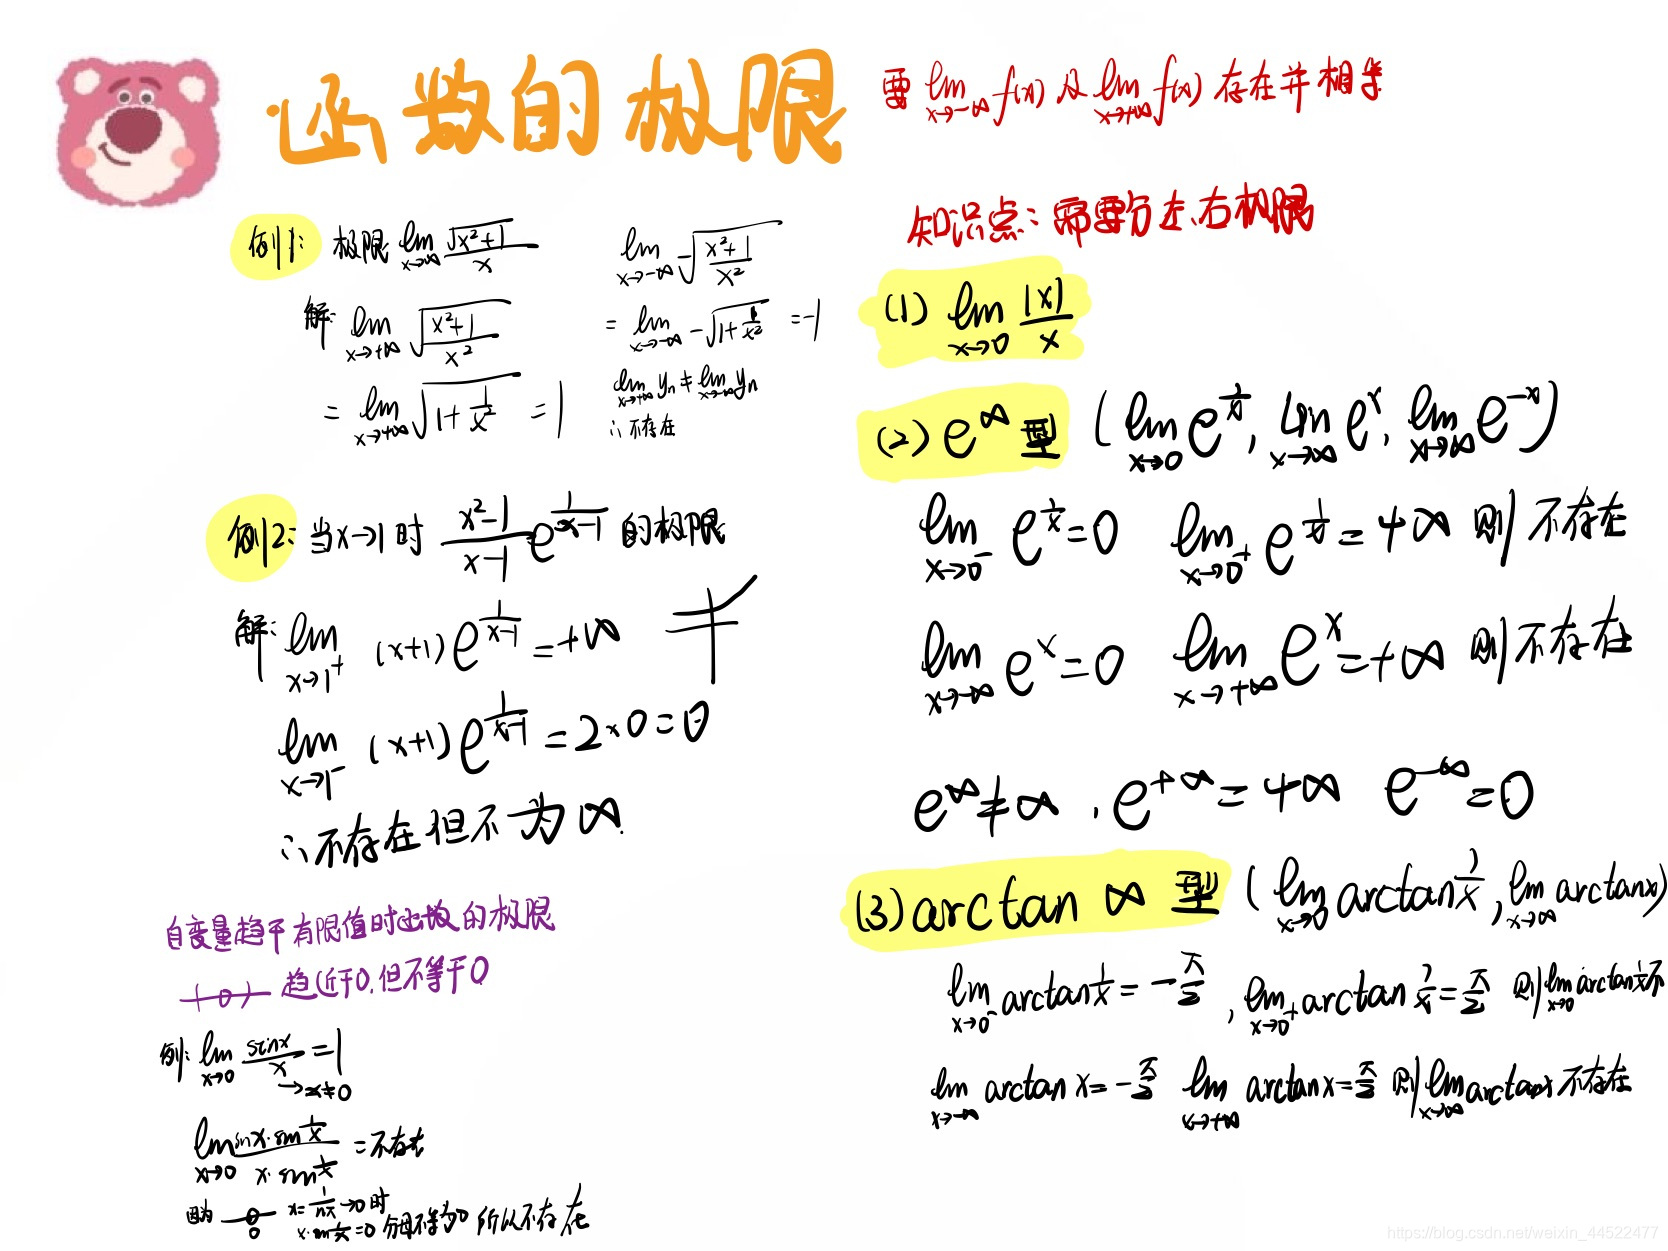 函数的极限
要 lim x→-∞ f(x) 及 lim x→+∞ f(x) 存在并相等
例1: 极限 lim x→∞ √(x²+1)/x
解: lim x→+∞ √((x²+1)/x²)
= lim x→+∞ √(1+1/x²) = 1
lim x→-∞ -√((x²+1)/x²)
= lim x→-∞ -√(1+1/x²) = -1
lim x→+∞ yn ≠ lim x→-∞ yn
∴不存在
例2: 当x→1时 (x²-1)/(x-1) e^(1/(x-1)) 的极限
解: lim x→1⁺ (x+1)e^(1/(x-1)) = +∞
lim x→1⁻ (x+1)e^(1/(x-1)) = 2×0=0
∴不存在但不为∞
自变量趋于有限值时函数的极限
(0) 趋近于0,但不等于0
例: lim x→0 sinx/x = 1
→x≠0
lim x→0 (sinx·sin(1/x))/(x·sin(1/x)) = 不存在
因为 0/0 x=1/(nπ)→0时
x·sin(1/x)=0 分母不等为0 所以不存在
知识点: 需要分左、右极限
(1) lim x→0 |x|/x
(2) e^∞ 型 (lim x→0 e^(1/x), lim x→∞ e^x, lim x→∞ e^(-x))
lim x→0⁻ e^(1/x)=0 lim x→0⁺ e^(1/x)=+∞ 则不存在
lim x→-∞ e^x=0 lim x→+∞ e^x=+∞ 则不存在
e^∞≠∞, e^(+∞)=+∞ e^(-∞)=0
(3) arctan ∞ 型 (lim x→0 arctan 1/x, lim x→∞ arctanx)
lim x→0⁻ arctan 1/x = -π/2, lim x→0⁺ arctan 1/x = π/2 则 lim x→0 arctan 1/x 不
lim x→-∞ arctan x = -π/2 lim x→+∞ arctan x = π/2 则 lim x→∞ arctan x 不存在
https://blog.csdn.net/weixin_44522477